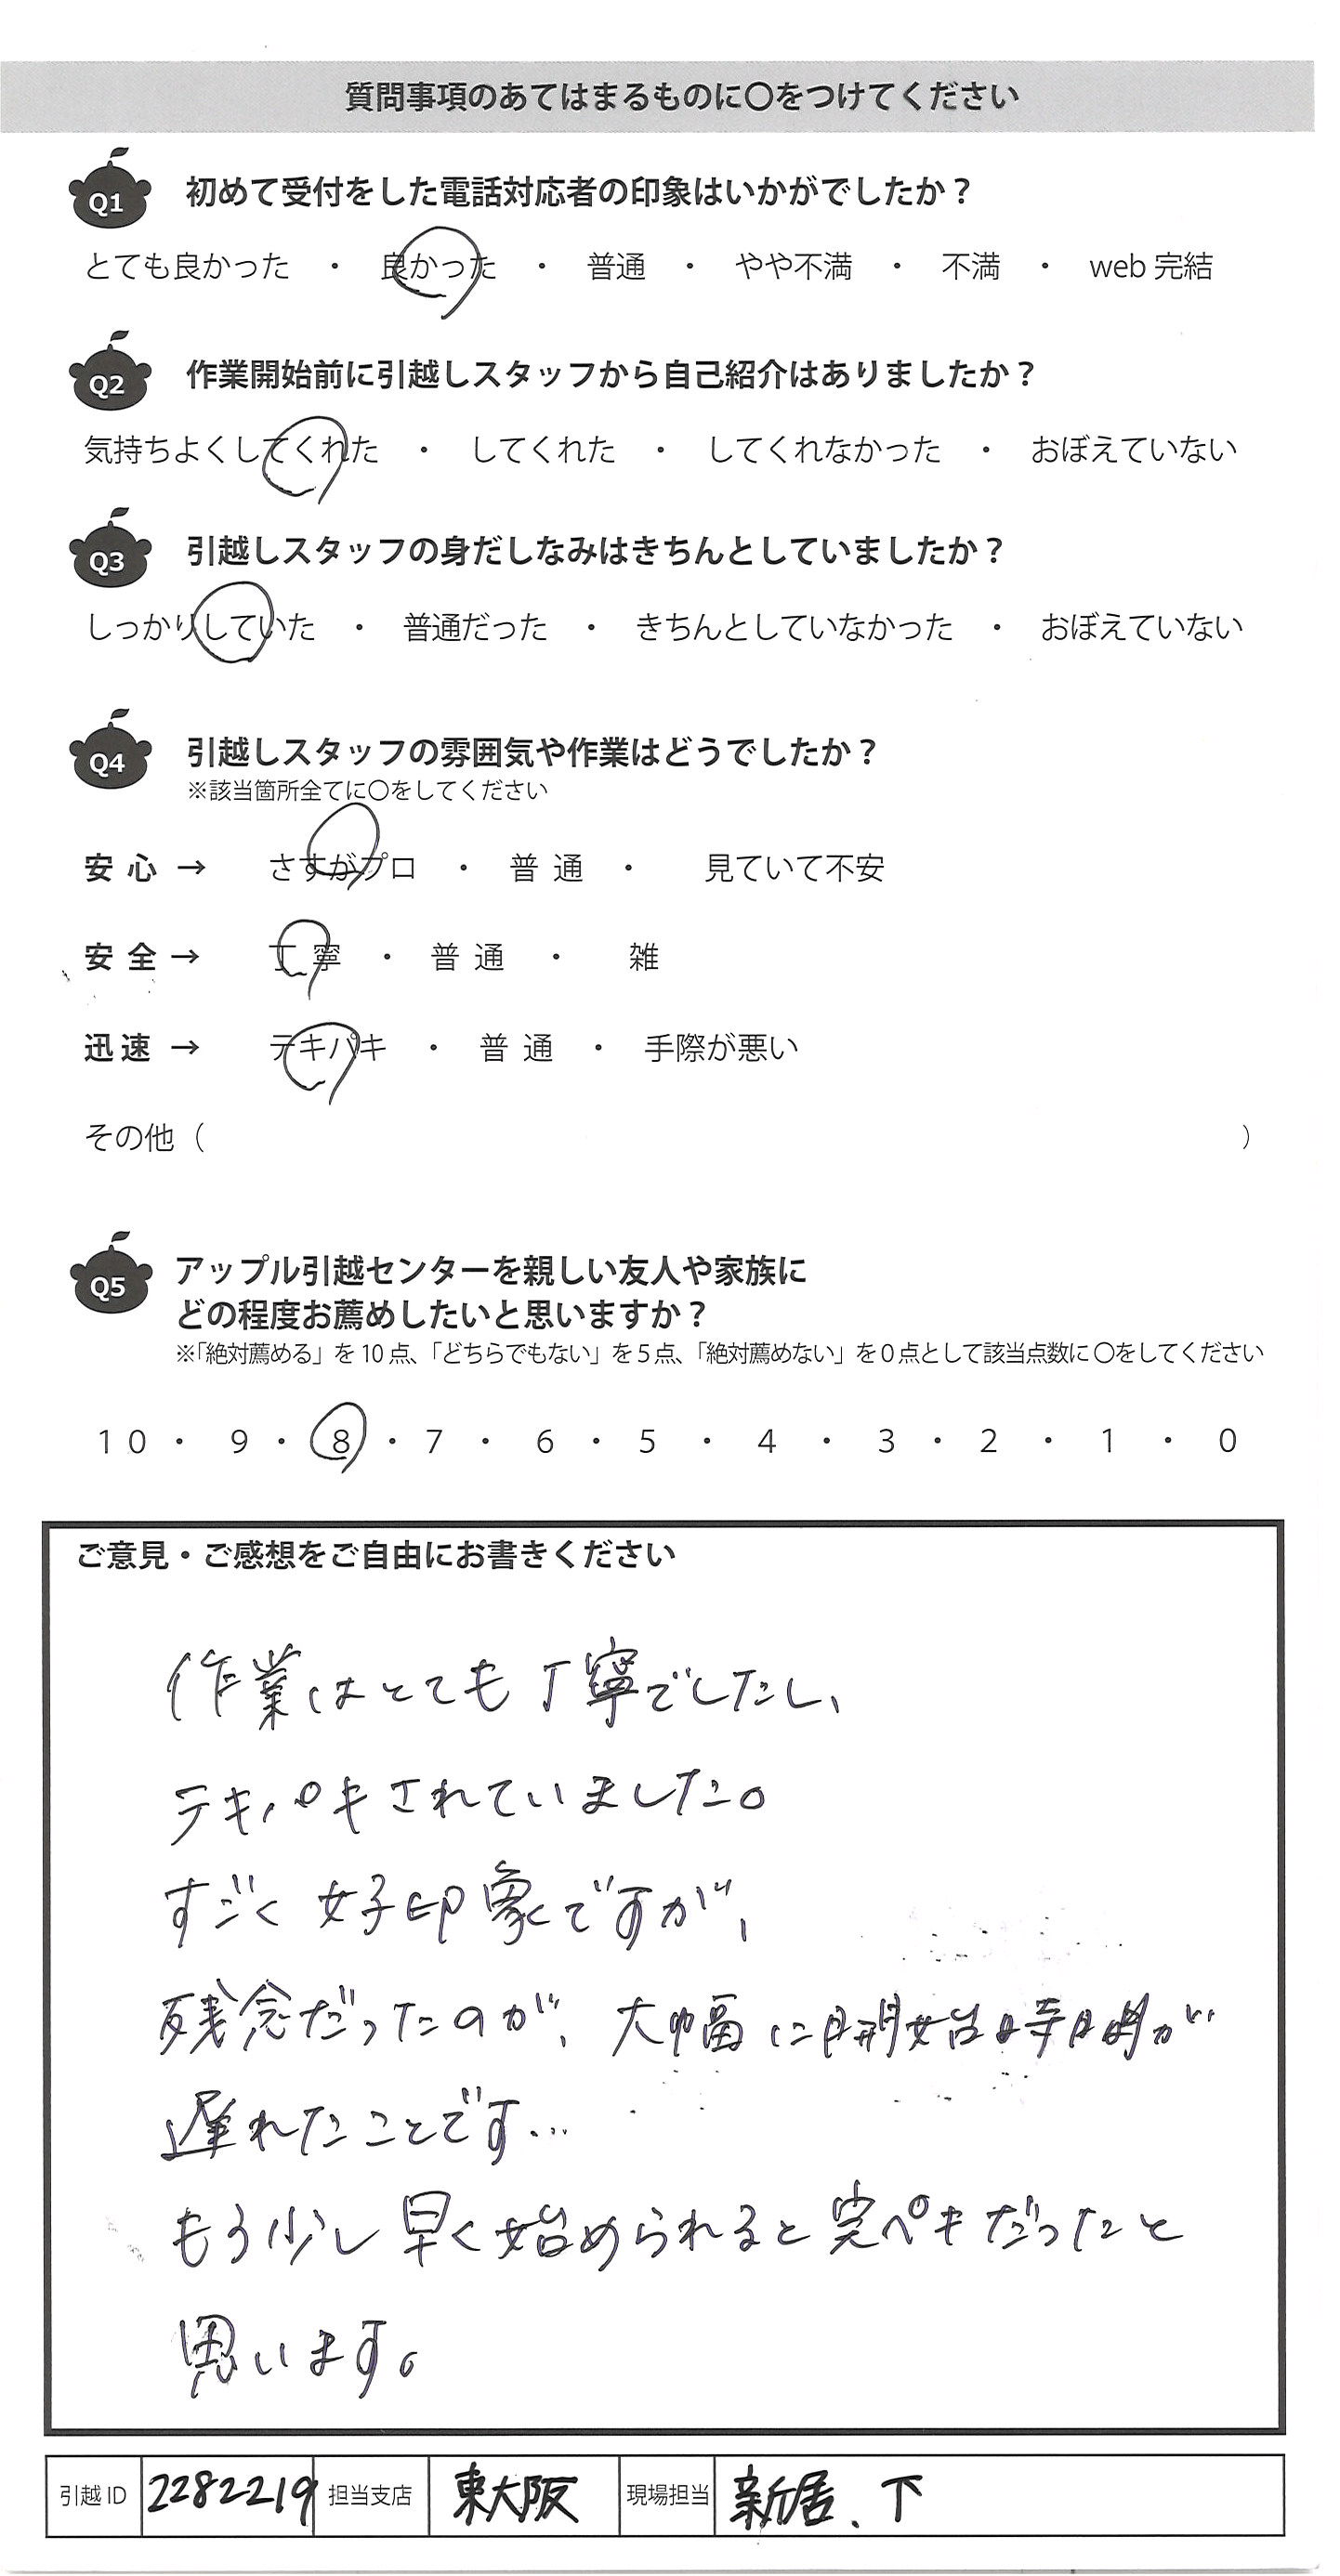 質問事項のあてはまるものに〇をつけてください
Q1 初めて受付をした電話対応者の印象はいかがでしたか？
とても良かった ・ 良かった ・ 普通 ・ やや不満 ・ 不満 ・ web 完結
Q2 作業開始前に引越しスタッフから自己紹介はありましたか？
気持ちよくしてくれた ・ してくれた ・ してくれなかった ・ おぼえていない
Q3 引越しスタッフの身だしなみはきちんとしていましたか？
しっかりしていた ・ 普通だった ・ きちんとしていなかった ・ おぼえていない
Q4 引越しスタッフの雰囲気や作業はどうでしたか？
※該当箇所全てに〇をしてください
安心 → さすがプロ ・ 普通 ・ 見ていて不安
安全 → 丁寧 ・ 普通 ・ 雑
迅速 → テキパキ ・ 普通 ・ 手際が悪い
その他（ ）
Q5 アップル引越センターを親しい友人や家族に
どの程度お薦めしたいと思いますか？
※「絶対薦める」を 10 点、「どちらでもない」を 5 点、「絶対薦めない」を 0 点として該当点数に 〇をしてください
10 ・ 9 ・ 8 ・ 7 ・ 6 ・ 5 ・ 4 ・ 3 ・ 2 ・ 1 ・ 0
ご意見・ご感想をご自由にお書きください
作業はとても丁寧でしたし、
テキパキされていました。
すごく好印象ですが、
残念だったのが、大幅に開始時間が
遅れたことです…
もう少し早く始められると完ペキだったと
思います。
引越 ID 2282219 担当支店 東大阪 現場担当 新居、下